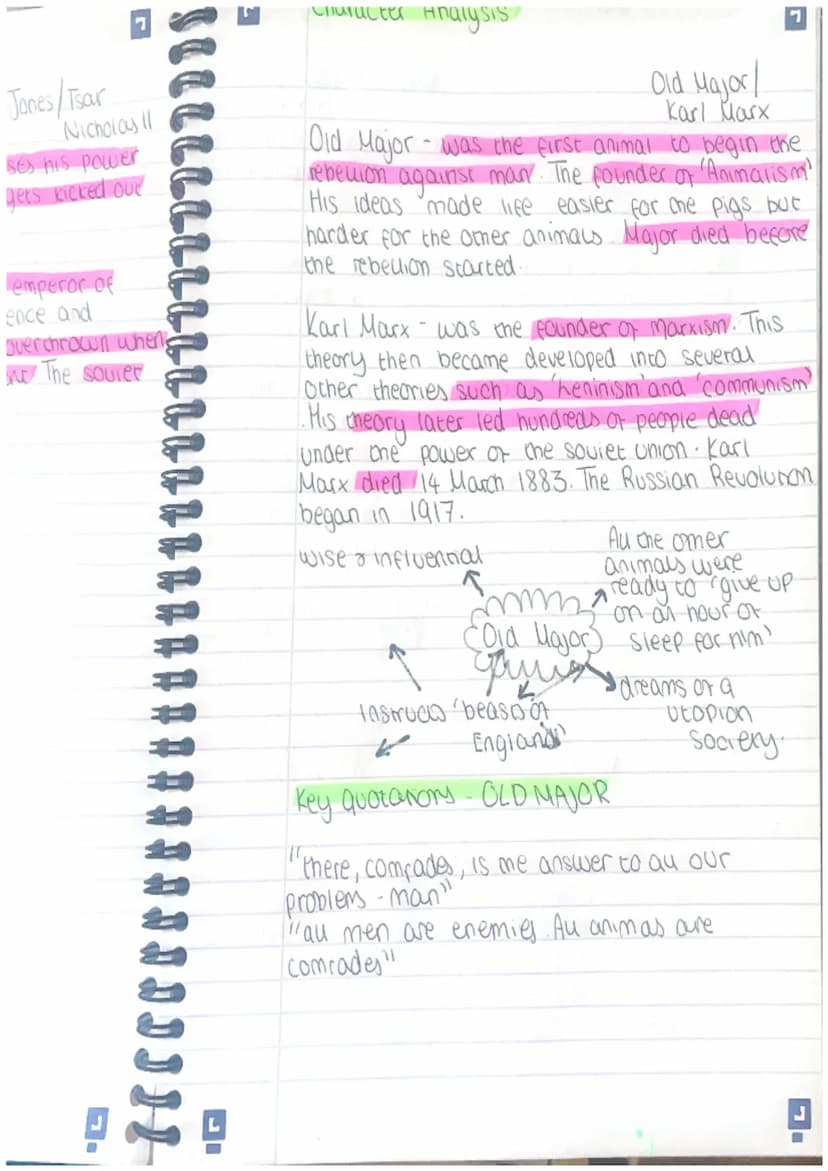 Character Analysis
Jones/Tsar
Nicholas II
ses his power
gets kicked out
emperor of
ence and
overthrown when
The soviet
Old Major/
Karl Marx
Old Major - was the first animal to begin the
rebellion against man. The founder of 'Animalism'
His ideas made life easier for the pigs but
harder for the other animals. Major died before
the rebellion started.
Karl Marx - was the founder of Marxism. This
theory then became developed into several
other theories such as 'heninism' and 'communism'
. His theory later led hundreds of people dead
under the power of the soviet union. Karl
Marx died 14 March 1883. The Russian Revolution
began in 1917.
wise & influential
All the other
animals were
ready to 'give up
on an hour of
sleep for him'
Old Major
dreams of a
utopian
society.
Instructs 'beasts of
England'
Key quotations - OLD MAJOR
"there, comrades, is the answer to all our
problems - man"
"all men are enemies. All animas are
comrades"